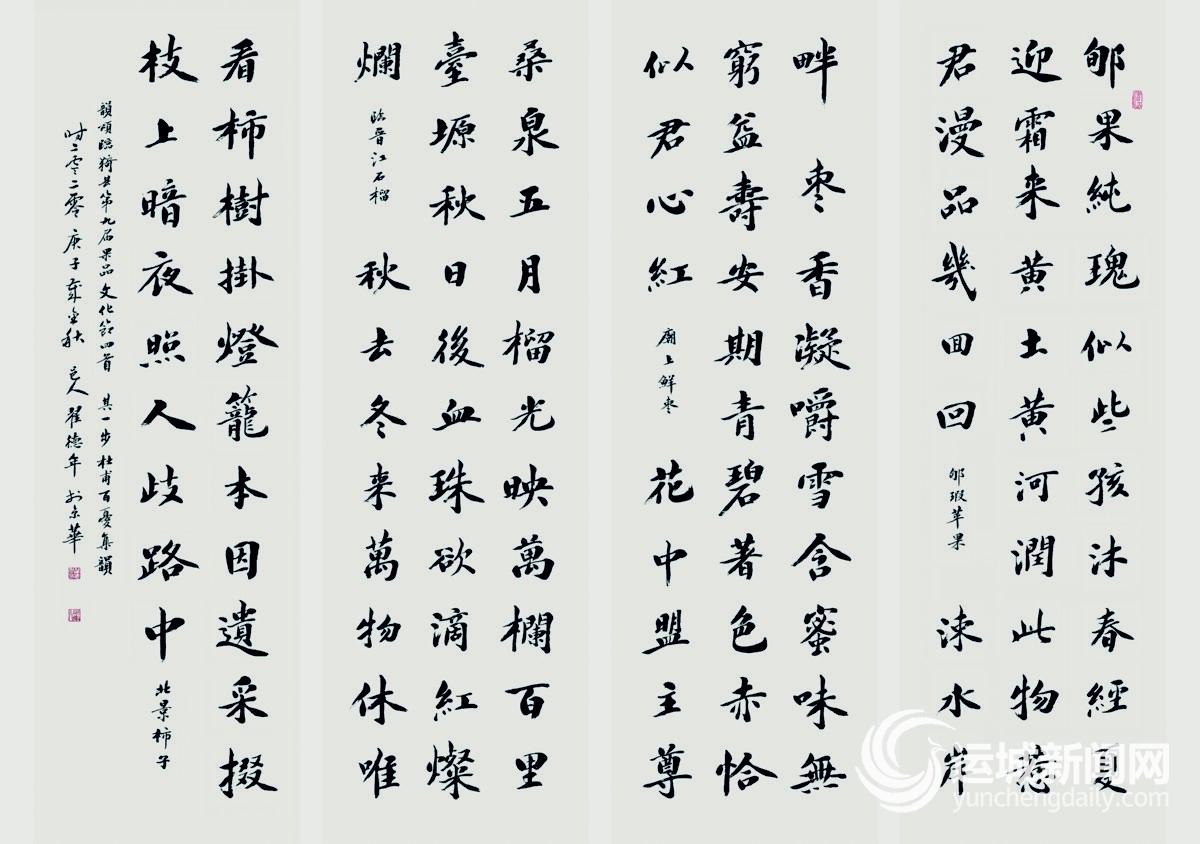 郇果純瑰似些孩沐春經夏
迎霜来黄土黄河潤此物惹
君漫品幾囬回 郇瑕苹果 涑水岸
畔 枣香凝嚼雪含蜜味無
窮益壽安期青碧著色赤恰
似君心紅 廟上鮮枣 花中盟主尊
桑泉五月榴光映萬欄百里
臺塬秋日後血珠欲滴紅燦
爛 臨晋江石榴 秋去冬来萬物休唯
看柿樹掛燈籠本因遺采掇
枝上暗夜照人歧路中 北景柿子
韻頌臨猗县第九届果品文化節四首 其一步杜甫百憂集韻
时二零二零庚子年金秋 邑人翟德年於京華
运城新闻网
yunchengdaily.com